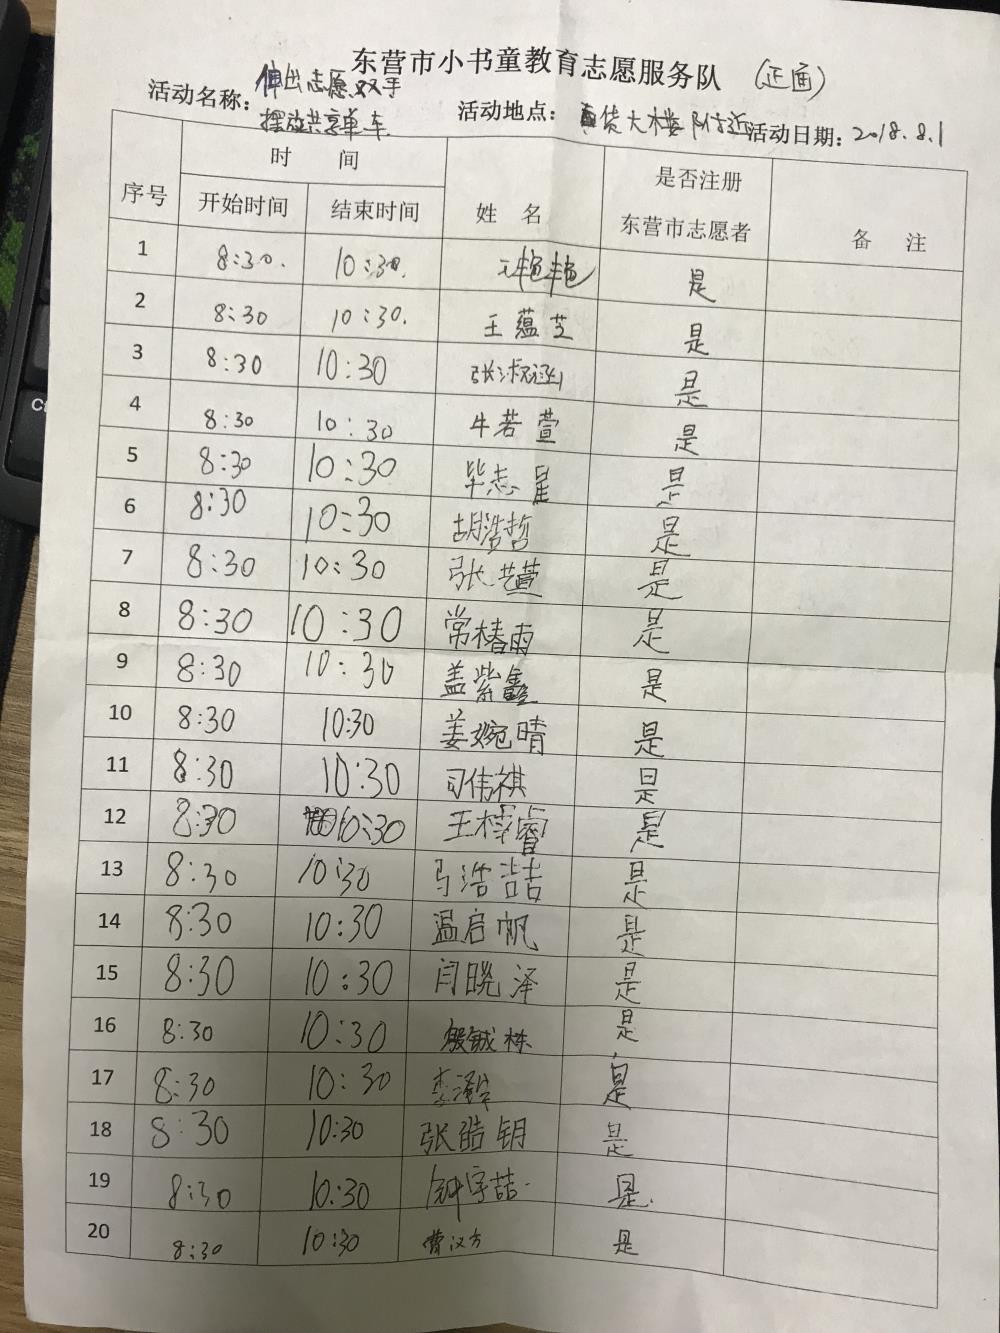 东营市小书童教育志愿服务队 (正面)
活动名称: 伸出志愿双手
摆放共享单车
活动地点: 百货大楼附近 活动日期: 2018.8.1
序号 时 间 姓 名 是否注册 备 注
开始时间 结束时间 东营市志愿者
1 8:30. 10:30. 是
2 8:30 10:30. 王蕴芝 是
3 8:30 10:30 张淑涵 是
4 8:30 10:30 牛若萱 是
5 8:30 10:30 毕志星 是
6 8:30 10:30 胡浩哲 是
7 8:30 10:30 张艺萱 是
8 8:30 10:30 常椿雨 是
9 8:30 10:30 盖紫鑫 是
10 8:30 10:30 姜婉晴 是
11 8:30 10:30 司伟祺 是
12 8:30 10:30 王梓睿 是
13 8:30 10:30 弓浩喆 是
14 8:30 10:30 温启帆 是
15 8:30 10:30 闫晓泽 是
16 8:30 10:30 殷铖栋 是
17 8:30 10:30 李泽 是
18 8:30 10:30 张皓钥 是
19 8:30 10:30 钟宇喆 是.
20 8:30 10:30 曹汉方 是